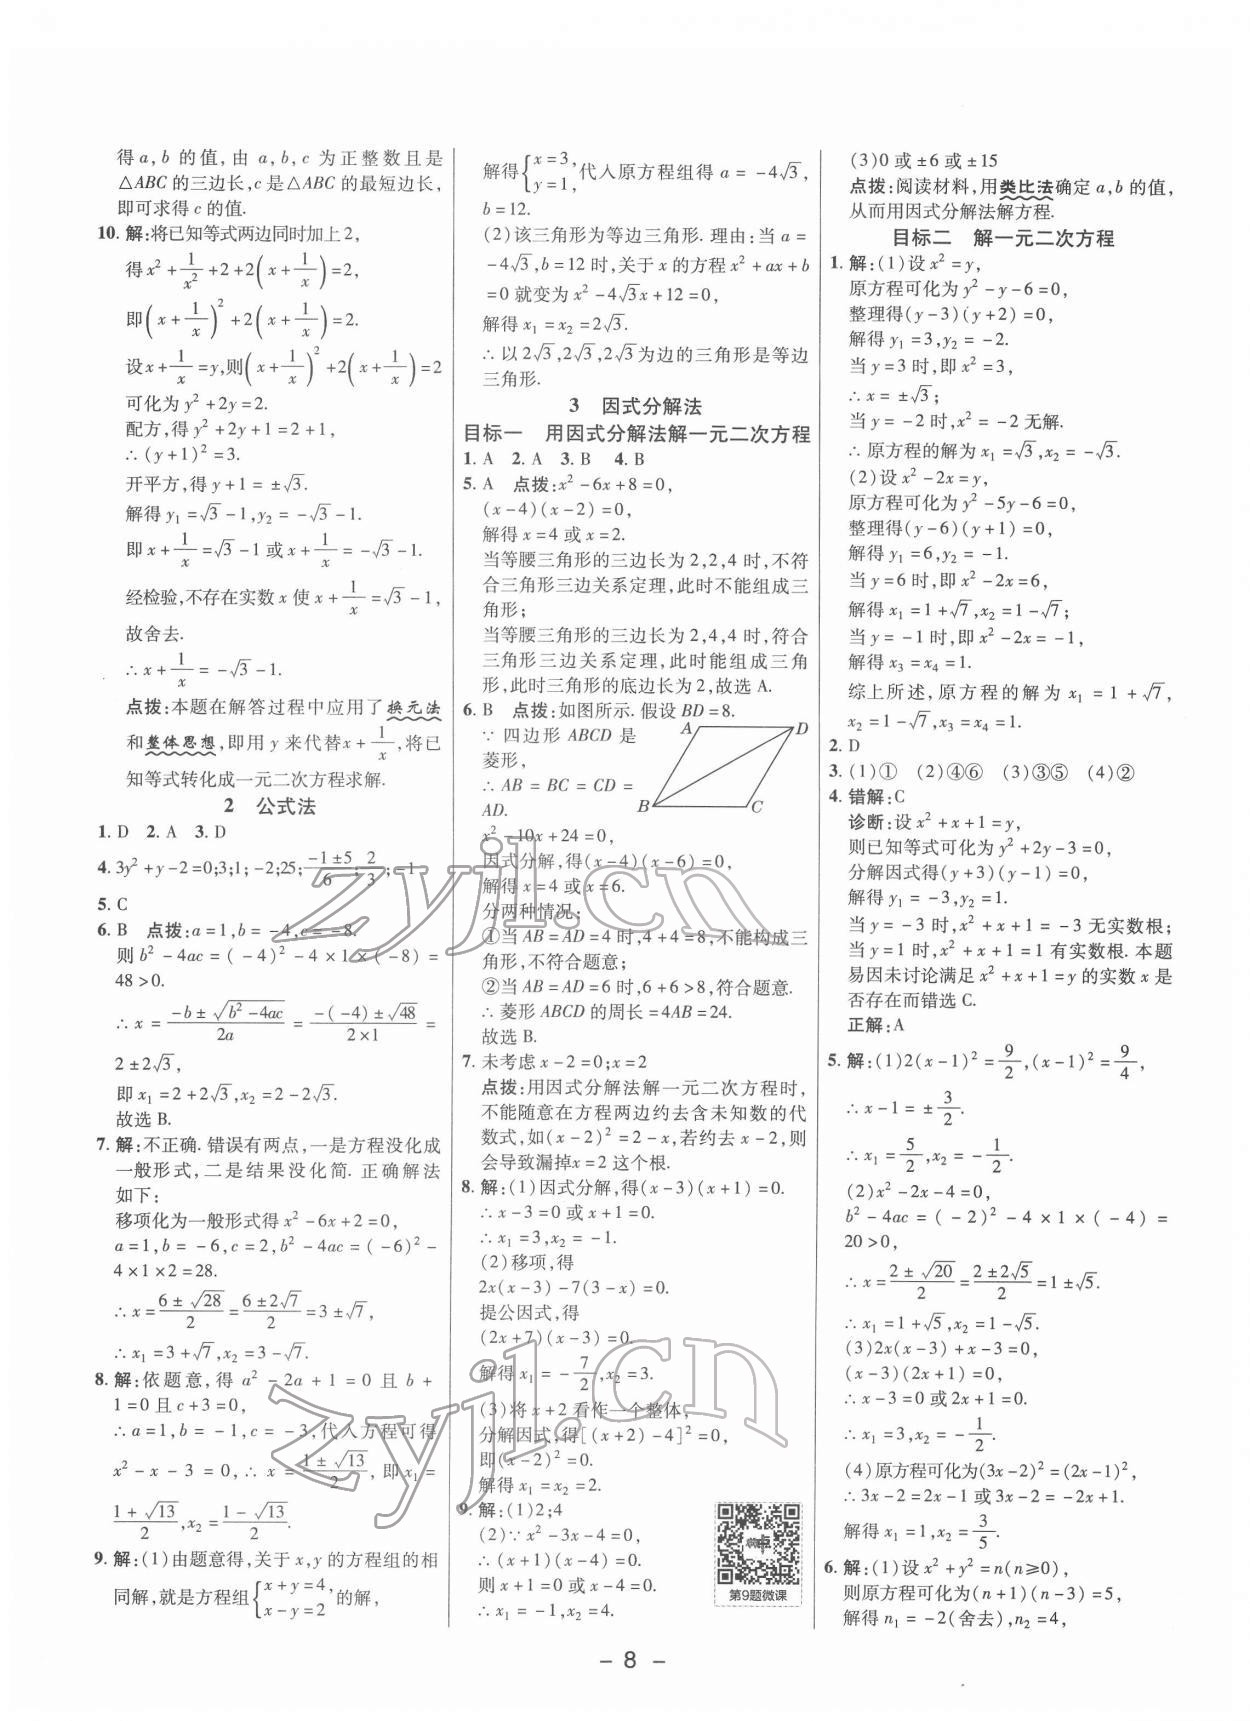 得 a,b 的值,由 a,b,c 为正整数且是
△ABC 的三边长,c 是△ABC 的最短边长,
即可求得 c 的值.
10. 解:将已知等式两边同时加上 2,
得 x²+1/x²+2+2(x+1/x)=2,
即(x+1/x)²+2(x+1/x)=2.
设 x+1/x=y,则(x+1/x)²+2(x+1/x)=2
可化为 y²+2y=2.
配方,得 y²+2y+1=2+1,
∴(y+1)²=3.
开平方,得 y+1=±√3.
解得 y₁=√3-1,y₂=-√3-1.
即 x+1/x=√3-1 或 x+1/x=-√3-1.
经检验,不存在实数 x 使 x+1/x=√3-1,
故舍去.
∴x+1/x=-√3-1.
点拨:本题在解答过程中应用了换元法
和整体思想,即用 y 来代替 x+1/x,将已
知等式转化成一元二次方程求解.
2 公式法
1. D 2. A 3. D
4. 3y²+y-2=0;3;1;-2;25;(-1±5)/6;2/3;-1
5. C
6. B 点拨:a=1,b=-4,c=-8.
则 b²-4ac=(-4)²-4×1×(-8)=
48>0.
∴x=(-b±√(b²-4ac))/2a=(-(-4)±√48)/(2×1)=
2±2√3,
即 x₁=2+2√3,x₂=2-2√3.
故选 B.
7. 解:不正确. 错误有两点,一是方程没化成
一般形式,二是结果没化简. 正确解法
如下:
移项化为一般形式得 x²-6x+2=0,
a=1,b=-6,c=2,b²-4ac=(-6)²-
4×1×2=28.
∴x=(6±√28)/2=(6±2√7)/2=3±√7,
∴x₁=3+√7,x₂=3-√7.
8. 解:依题意,得 a²-2a+1=0 且 b+
1=0 且 c+3=0,
∴a=1,b=-1,c=-3,代入方程可得
x²-x-3=0,∴x=(1±√13)/2,即 x₁=
(1+√13)/2,x₂=(1-√13)/2.
9. 解:(1)由题意得,关于 x,y 的方程组的相
同解,就是方程组{x+y=4, x-y=2 的解,
解得{x=3, y=1, 代入原方程组得 a=-4√3,
b=12.
(2)该三角形为等边三角形. 理由:当 a=
-4√3,b=12 时,关于 x 的方程 x²+ax+b
=0 就变为 x²-4√3x+12=0,
解得 x₁=x₂=2√3.
∴以 2√3,2√3,2√3为边的三角形是等边
三角形.
3 因式分解法
目标一 用因式分解法解一元二次方程
1. A 2. A 3. B 4. B
5. A 点拨:x²-6x+8=0,
(x-4)(x-2)=0,
解得 x=4 或 x=2.
当等腰三角形的三边长为 2,2,4 时,不符
合三角形三边关系定理,此时不能组成三
角形;
当等腰三角形的三边长为 2,4,4 时,符合
三角形三边关系定理,此时能组成三角
形,此时三角形的底边长为 2,故选 A.
6. B 点拨:如图所示. 假设 BD=8.
∵四边形 ABCD 是
菱形,
∴AB=BC=CD=
AD.
A D B C
x²-10x+24=0,
因式分解,得(x-4)(x-6)=0,
解得 x=4 或 x=6.
分两种情况:
①当 AB=AD=4 时,4+4=8,不能构成三
角形,不符合题意;
②当 AB=AD=6 时,6+6>8,符合题意.
∴菱形 ABCD 的周长=4AB=24.
故选 B.
7. 未考虑 x-2=0;x=2
点拨:用因式分解法解一元二次方程时,
不能随意在方程两边约去含未知数的代
数式,如(x-2)²=2-x,若约去 x-2,则
会导致漏掉 x=2 这个根.
8. 解:(1)因式分解,得(x-3)(x+1)=0.
∴x-3=0 或 x+1=0.
∴x₁=3,x₂=-1.
(2)移项,得
2x(x-3)-7(3-x)=0.
提公因式,得
(2x+7)(x-3)=0.
解得 x₁=-7/2,x₂=3.
(3)将 x+2 看作一个整体,
分解因式,得[(x+2)-4]²=0,
即(x-2)²=0.
解得 x₁=x₂=2.
9. 解:(1)2;4
(2)∵x²-3x-4=0,
∴(x+1)(x-4)=0,
则 x+1=0 或 x-4=0,
∴x₁=-1,x₂=4.
第9题微课
(3)0 或±6 或±15
点拨:阅读材料,用类比法确定 a,b 的值,
从而用因式分解法解方程.
目标二 解一元二次方程
1. 解:(1)设 x²=y,
原方程可化为 y²-y-6=0,
整理得(y-3)(y+2)=0,
解得 y₁=3,y₂=-2.
当 y=3 时,即 x²=3,
∴x=±√3;
当 y=-2 时,x²=-2 无解.
∴原方程的解为 x₁=√3,x₂=-√3.
(2)设 x²-2x=y,
原方程可化为 y²-5y-6=0,
整理得(y-6)(y+1)=0,
解得 y₁=6,y₂=-1.
当 y=6 时,即 x²-2x=6,
解得 x₁=1+√7,x₂=1-√7;
当 y=-1 时,即 x²-2x=-1,
解得 x₃=x₄=1.
综上所述,原方程的解为 x₁=1+√7,
x₂=1-√7,x₃=x₄=1.
2. D
3. (1)① (2)④⑥ (3)③⑤ (4)②
4. 错解:C
诊断:设 x²+x+1=y,
则已知等式可化为 y²+2y-3=0,
分解因式得(y+3)(y-1)=0,
解得 y₁=-3,y₂=1.
当 y=-3 时,x²+x+1=-3 无实数根;
当 y=1 时,x²+x+1=1 有实数根. 本题
易因未讨论满足 x²+x+1=y 的实数 x 是
否存在而错选 C.
正解:A
5. 解:(1)2(x-1)²=9/2,(x-1)²=9/4,
∴x-1=±3/2.
∴x₁=5/2,x₂=-1/2.
(2)x²-2x-4=0,
b²-4ac=(-2)²-4×1×(-4)=
20>0,
∴x=(2±√20)/2=(2±2√5)/2=1±√5.
∴x₁=1+√5,x₂=1-√5.
(3)2x(x-3)+x-3=0,
(x-3)(2x+1)=0,
∴x-3=0 或 2x+1=0,
∴x₁=3,x₂=-1/2.
(4)原方程可化为(3x-2)²=(2x-1)²,
∴3x-2=2x-1 或 3x-2=-2x+1.
解得 x₁=1,x₂=3/5.
6. 解:(1)设 x²+y²=n(n≥0),
则原方程可化为(n+1)(n-3)=5,
解得 n₁=-2(舍去),n₂=4,
- 8 -
zyjl.cn
zyjl.cn